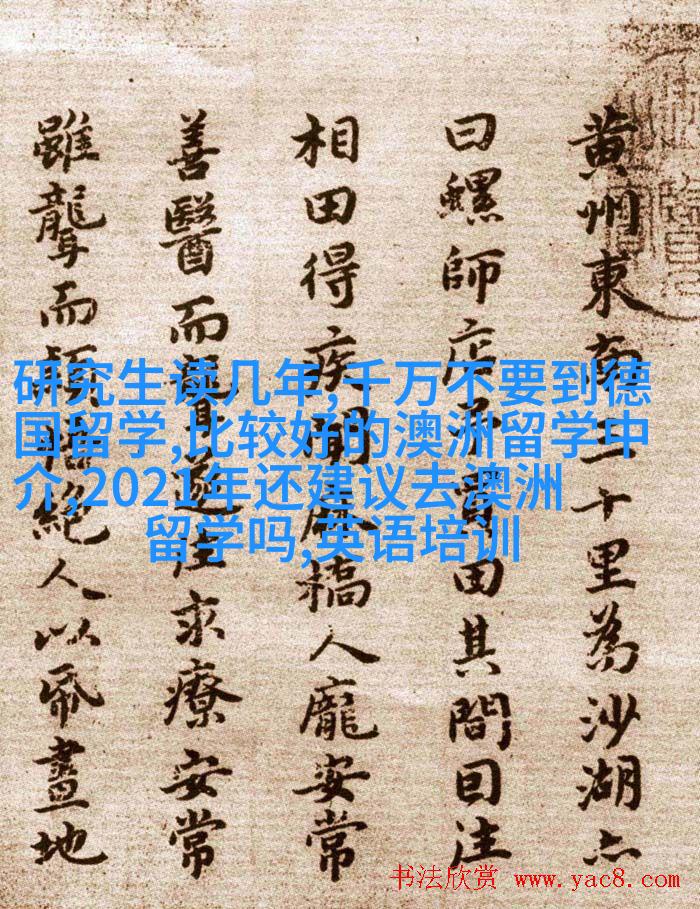 黄州東南三十里為沙湖亦
曰螺師店予買田其間因往
相田得疾聞麻橋人龐安常
善醫而聾遂往求療安常
雖聾而穎悟絕人以紙畫地
研究生读几年,千万不要到德
国留学,比较好的澳洲留学中
介,2021年还建议去澳洲
留学吗,英语培训
书法欣赏 www.yac8.com